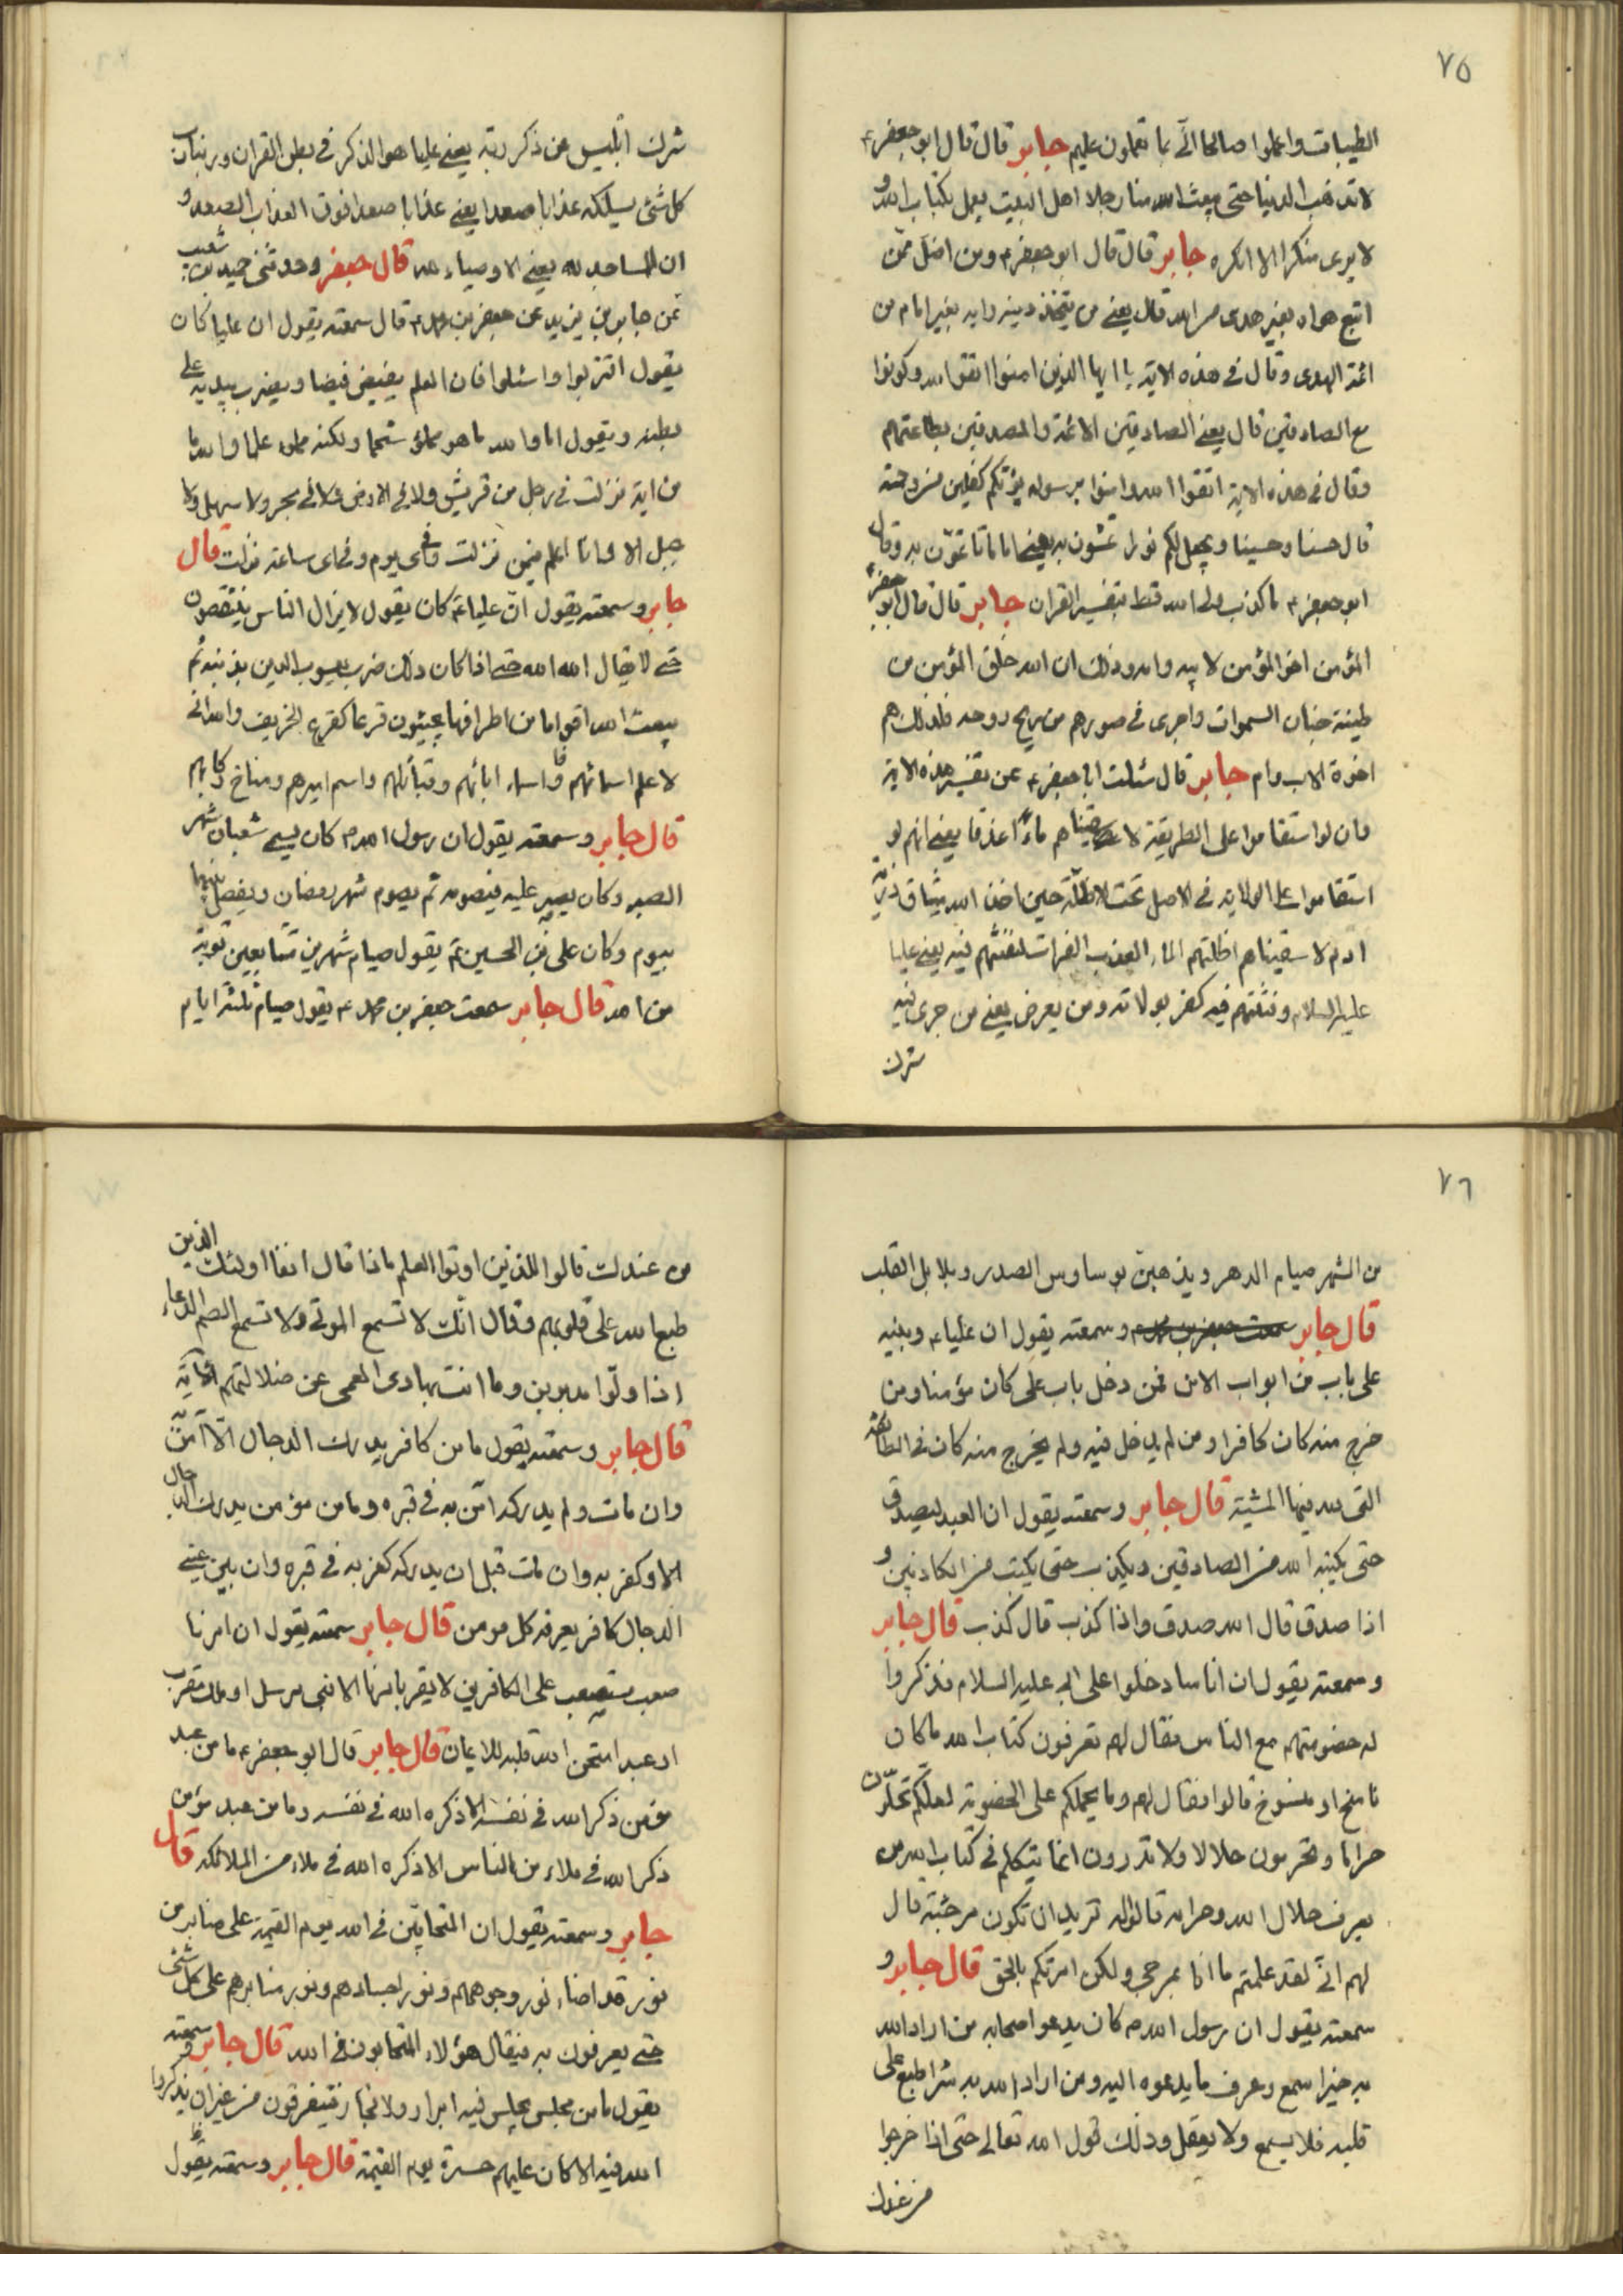 ٧٥
الطيبات واعملوا صالحا انى بما تعملون عليم جابر قال قال ابو جعفر ع
لا تذهب الدنيا حتى يبعث الله منا رجلا اهل البيت يعمل بكتاب الله و
لا يرى منكرا الا انكره جابر قال قال ابو جعفر ع ومن اضل ممن
اتبع هواه بغير هدى من الله قال يعنى من يتخذ دينه رايه بغير امام من
ائمة الهدى وقال فى هذه الاية يا ايها الذين امنوا اتقوا الله وكونوا
مع الصادقين قال يعنى الصادقين الائمة والمصدقين بطاعتهم
وقال فى هذه الاية اتقوا الله وامنوا برسوله يؤتكم كفلين من رحمته
قال حسنا وحسينا ويجعل لكم نورا تمشون به يعنى اماما تاتمون به وقال
ابو جعفر ع ما كذب على الله قط بتفسير القران جابر قال قال ابو جعفر ع
المؤمن اخو المؤمن لابيه وامه وذلك ان الله خلق المؤمن من
طينة جنان السموات واجرى فى صورهم من ريح روحه فلذلك هم
اخوة لاب وام جابر قال سئلت ابا جعفر ع عن تفسير هذه الاية
وان لو استقاموا على الطريقة لاسقيناهم ماء غدقا يعنى انهم لو
استقاموا على الولاية فى الاصل تحت الاظلة حين اخذ الله ميثاق ذرية
ادم لاسقيناهم اظلتهم الماء العذب الفرات لنفتنهم فيه يعنى عليا
عليه السلام وفتنتهم فيه كفر بولايته ومن يعرض يعنى من جرى فيه
شرك
شرك ابليس عن ذكر ربه يعنى عليا هو الذكر فى بطن القران وربنا رب
كل شئ يسلكه عذابا صعدا يعنى عذابا صعدا فوق العذاب الصعد و
ان المساجد لله يعنى الاوصياء لله قال جعفر وحدثنى حميد بن شعيب
عن جابر بن يزيد عن جعفر بن محمد ع قال سمعته يقول ان عليا كان
يقول اقتربوا واسئلوا فان العلم يفيض فيضا ويضرب بيديه على
بطنه ويقول اما والله ما هو مملؤ شحما ولكنه مملو علما والله ما
من اية نزلت فى رجل من قريش ولا فى الارض ولا فى بحر ولا سهل ولا
جبل الا وانا اعلم فيمن نزلت وفى اى يوم وفى اى ساعة نزلت قال
جابر وسمعته يقول ان عليا ع كان يقول لا يزال الناس ينتقصون
حتى لا يقال الله الله حتى اذا كان ذلك ضرب يعسوب الدين بذنبه ثم
يبعث الله اقواما من اطرافها يجيئون قزعا كقزع الخريف والله انى
لاعلم اسمائهم واسماء ابائهم وقبائلهم واسم اميرهم ومناخ ركابهم
قال جابر وسمعته يقول ان رسول الله ص كان يسمى شعبان شهر
الصبر وكان يصبر عليه فيصومه ثم يصوم شهر رمضان ويفصل بينهما
بيوم وكان على بن الحسين ع يقول صيام شهرين متتابعين توبة
من الله قال جابر سمعت جعفر بن محمد ع يقول صيام ثلثة ايام
٧٦
من الشهر صيام الدهر ويذهبن بوساوس الصدر وبلابل القلب
قال جابر سمعت جعفر بن محمد ع وسمعته يقول ان عليا ع وبنيه
على باب من ابواب الامن فمن دخل باب على كان مؤمنا ومن
خرج منه كان كافرا ومن لم يدخل فيه ولم يخرج منه كان فى الطائفة
التى لله فيها المشية قال جابر وسمعته يقول ان العبد ليصدق
حتى يكتبه الله من الصادقين ويكذب حتى يكتب من الكاذبين و
اذا صدق قال الله صدق واذا كذب قال كذب قال جابر
وسمعته يقول ان اناسا دخلوا على ابى عليه السلام فذكروا
له خصومتهم مع الناس فقال لهم تعرفون كتاب الله ما كان
ناسخ او منسوخ قالوا فقال لهم وما يحملكم على الخصومة لعلكم تحلون
حراما وتحرمون حلالا ولا تدرون انما يتكلم فى كتاب الله من
يعرف حلال الله وحرامه قالوا له تريد ان تكون مرجئة قال
لهم ابى لقد علمتم ما انا بمرجى ولكن امرتكم بالحق قال جابر و
سمعته يقول ان رسول الله ص كان يدعو اصحابه من اراد الله
به خيرا سمع وعرف ما يدعوه اليه ومن اراد الله به شرا طبع على
قلبه فلا يسمع ولا يعقل وذلك قول الله تعالى حتى اذا خرجوا
من عندك
من عندك قالوا للذين اوتوا العلم ماذا قال انفا اولئك الذين
طبع الله على قلوبهم وقال انك لا تسمع الموتى ولا تسمع الصم الدعاء
اذا ولوا مدبرين وما انت بهادى العمى عن ضلالتهم الاية
قال جابر وسمعته يقول ما من كافر يدرك الدجال الا امن به
وان مات ولم يدركه امن به فى قبره وما من مؤمن يدرك الدجال
الا وكفر به وان مات قبل ان يدركه كفر به فى قبره وان بين عينى
الدجال كافر يعرفه كل مومن قال جابر سمعته يقول ان امرنا
صعب مستصعب على الكافرين لا يقر بامرنا الا نبى مرسل او ملك مقرب
او عبد امتحن الله قلبه للايمان قال جابر قال ابو جعفر ع ما من عبد
مؤمن ذكر الله فى نفسه الا ذكره الله فى نفسه وما من عبد مؤمن
ذكر الله فى ملاء من الناس الا ذكره الله فى ملاء من الملائكة قال
جابر وسمعته يقول ان المتحابين فى الله يوم القيمة على منابر من
نور قد اضاء نور وجوههم ونور اجسادهم ونور منابرهم على كل شئ
حتى يعرفون به فيقال هؤلاء المتحابون فى الله قال جابر وسمعته
يقول ما من مجلس يجلس فيه ابرار ولا فجار فيتفرقون من غير ان يذكروا
الله فيه الا كان عليهم حسرة يوم القيمة قال جابر وسمعته يقول